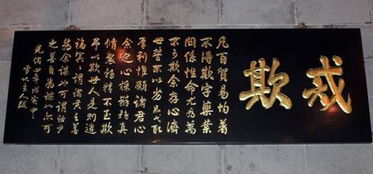 戒欺
凡百貿易均着
不得欺字藥業
關係性命尤為萬
不可欺余存心濟
世誓不以劣品弋取
厚利惟願諸君心
余之心採辦務真
修製務精不至欺
予以欺世人是則造
福冥冥謂諸君之善
為余謀也可謂諸君
之善自為謀也亦可
光緒四年戊寅四月
主人跋